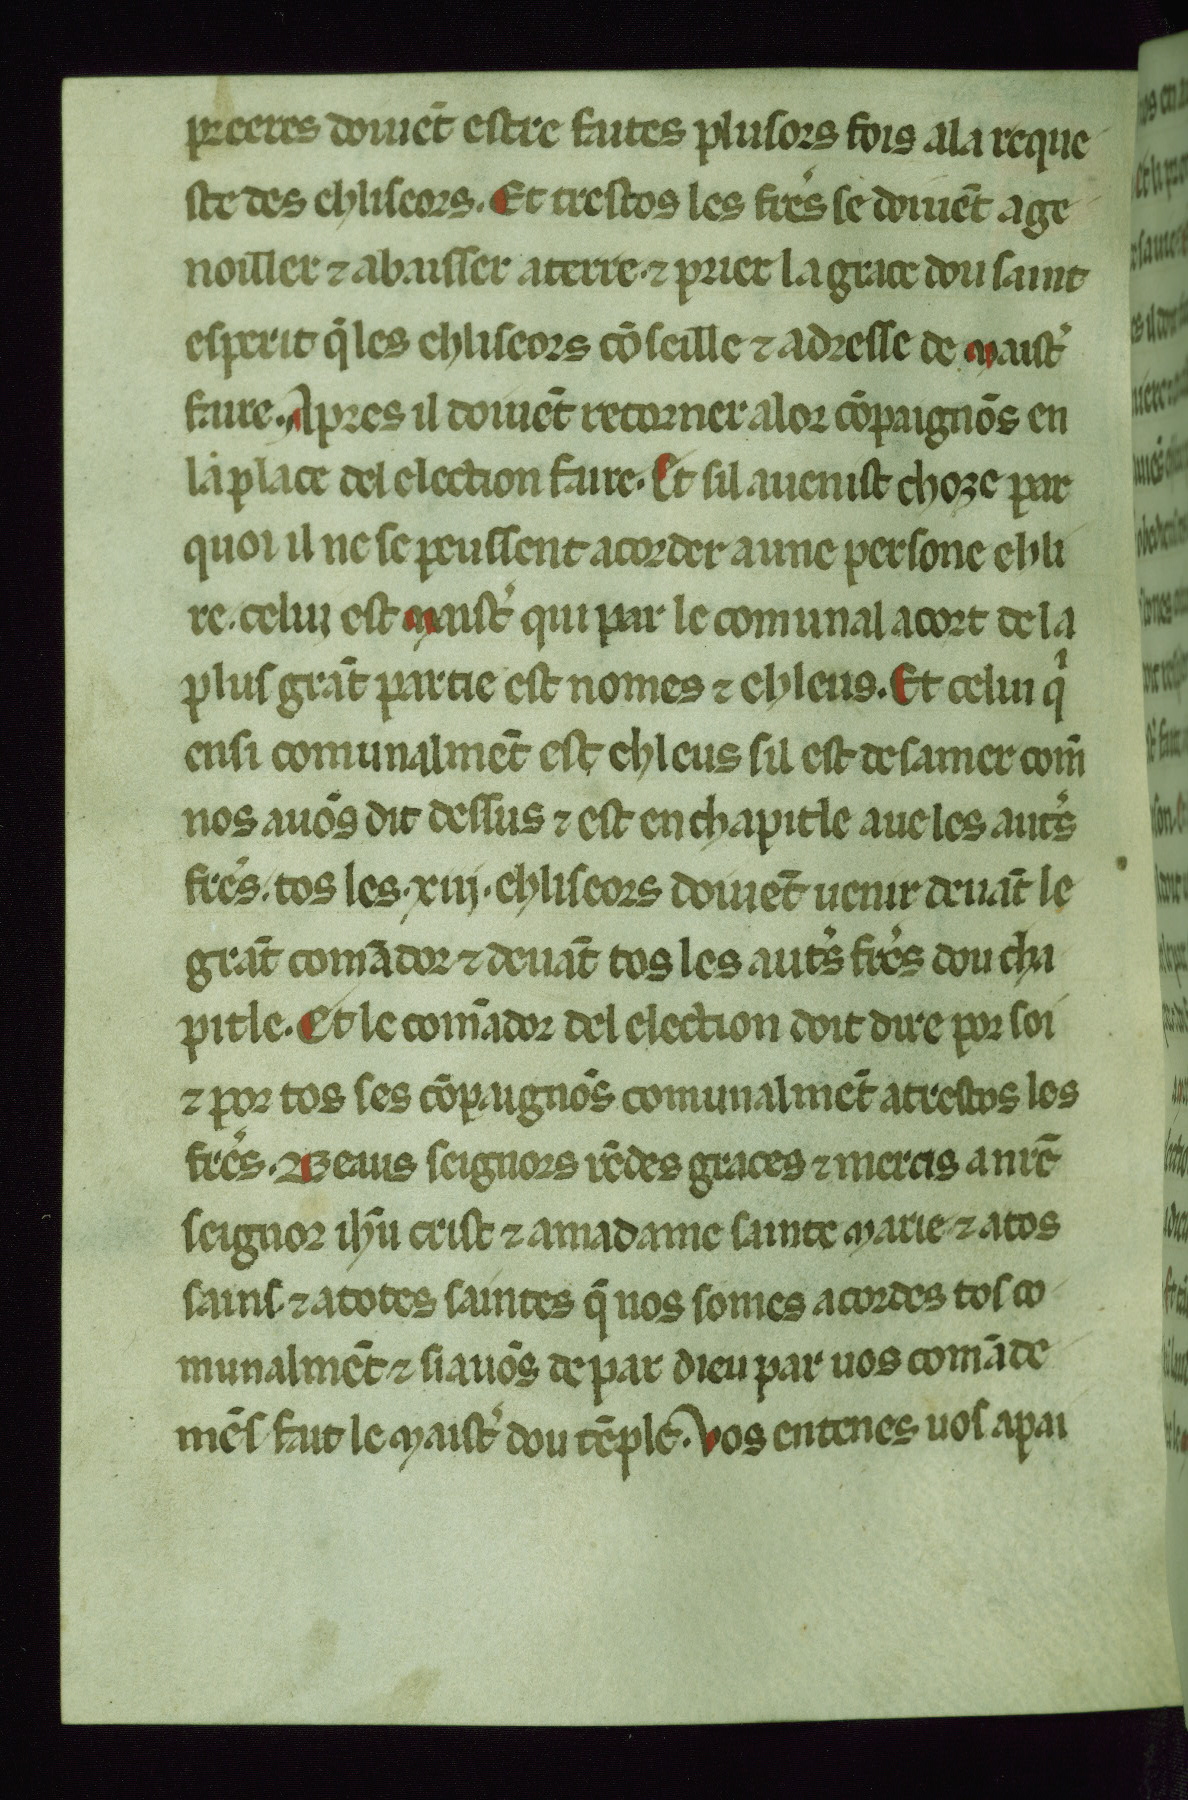 preeres doiuēt estre faites plusors fois ala reque
ste des ehliseors. Et trestos les frēs se doiuēt age
noiller ⁊ abaisser aterre. ⁊ prier la grace dou saint
esperit q̄ les ehliseors cōseille ⁊ adresse de Maist᷑
faire. Apres il doiuēt retorner alor cōpaignōs en
la place del election faire. Et sil auenist choze par
quoi il ne se peussent acorder aune persone ehli
re. celui est Maist᷑ qui par le comunal acort de la
plus grāt partie est nomes ⁊ ehleus. Et celui qⁱ
ensi comunalmēt est ehleus sil est desamer com̄
nos auōs dit dessus ⁊ est en chapitle aue les aut᷑s
frēs. tos les .xiij. ehliseors doiuēt uenir deuāt le
grāt comādor ⁊ deuāt tos les aut᷑s frēs dou cha
pitle. Et le comādor del election doit dire por soi
⁊ por tos ses cōpaignōs comunalmēt atrestos les
frēs. Beaus seignors rēdes graces ⁊ mercis anrē
seignor ihū crist ⁊ amadame sainte Marie ⁊ atos
sains ⁊ atotes saintes q̄ nos somes acordes tos co
munalmēt ⁊ si auōs de par dieu par uos comāde
mēs fait le Maist᷑ dou tēple. Vos entenes uos apai